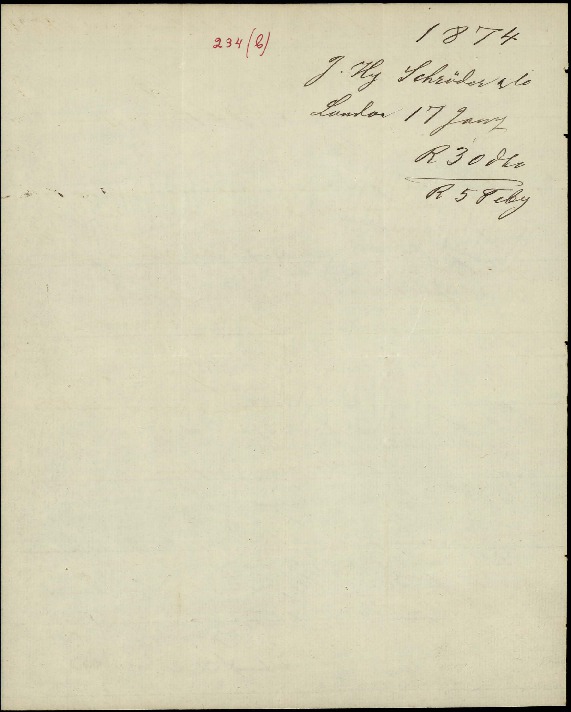 234(b)
1874
J. Hy Schröder & Co
London 17 Jany
R 30 dto
R 5 Feby